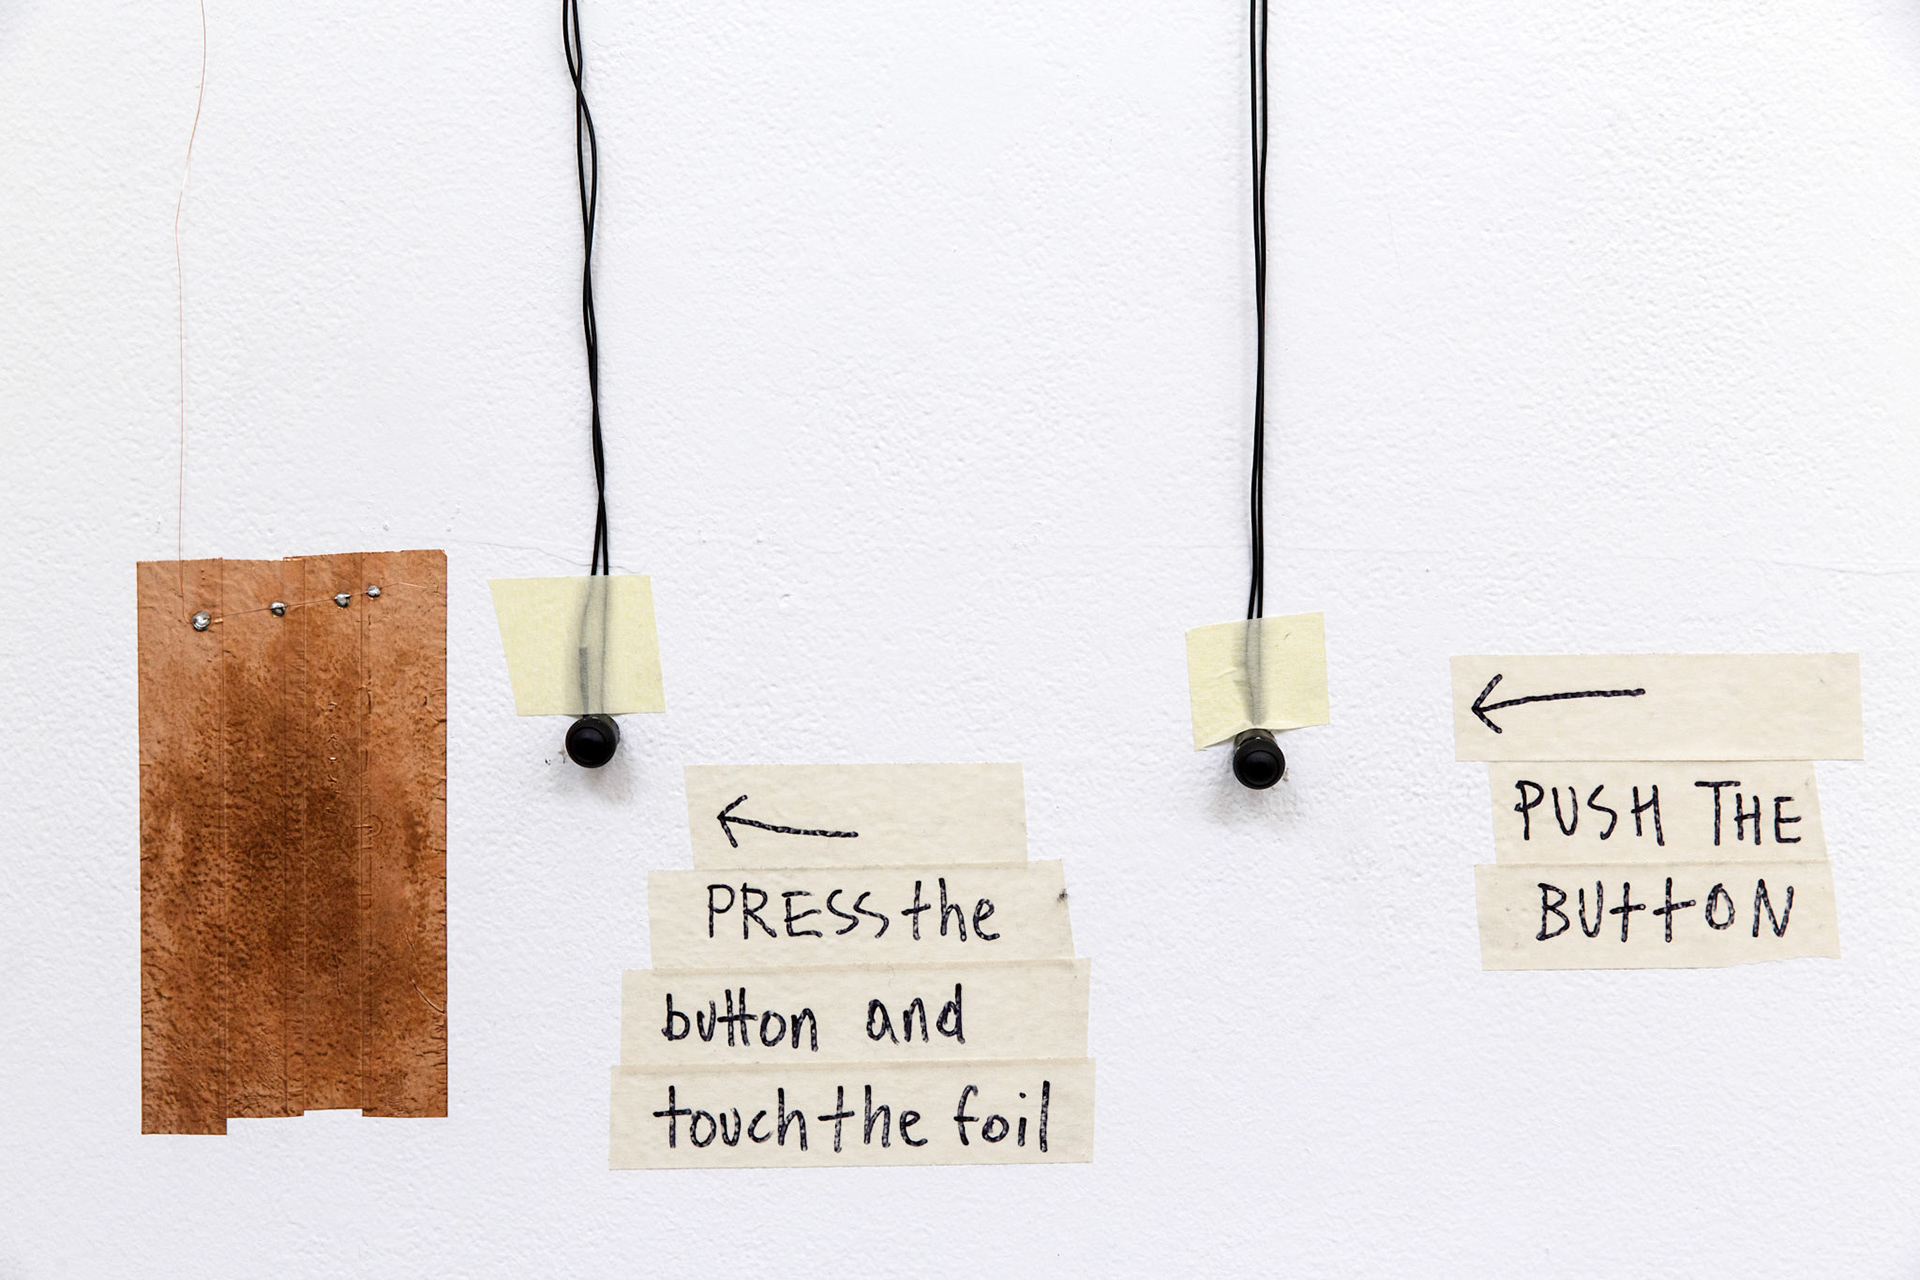 ←
PRESS the
button and
touch the foil
←
PUSH THE
BUttON